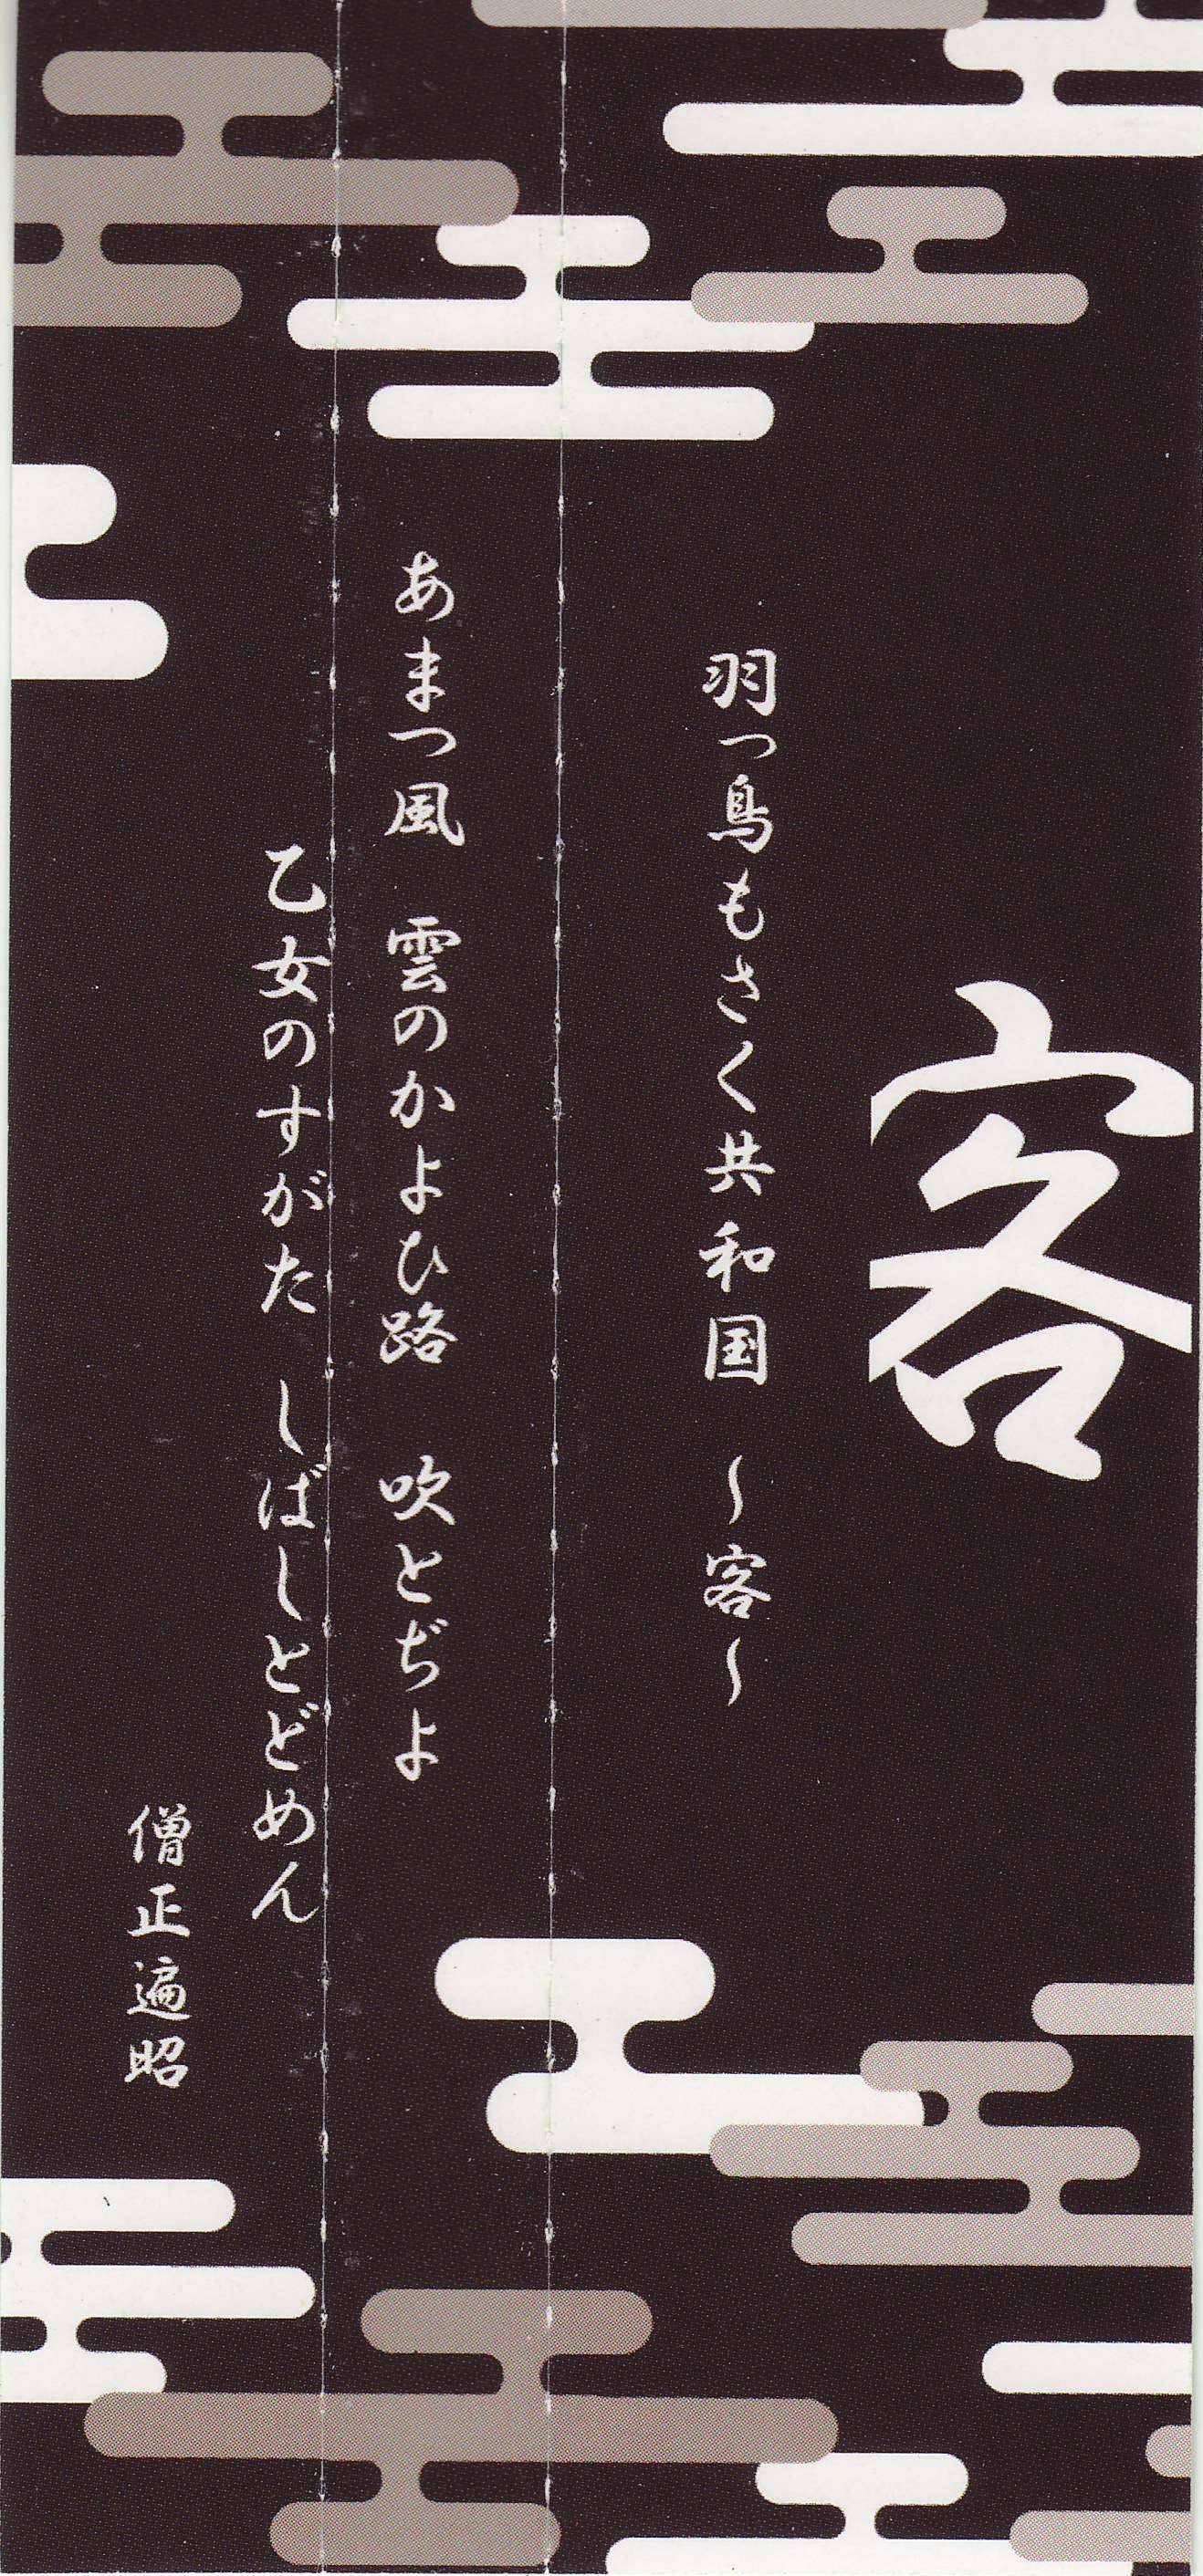 客
羽っ鳥もさく共和国 ～客～
あまつ風 雲のかよひ路 吹とぢよ
乙女のすがた しばしとどめん
僧正遍昭